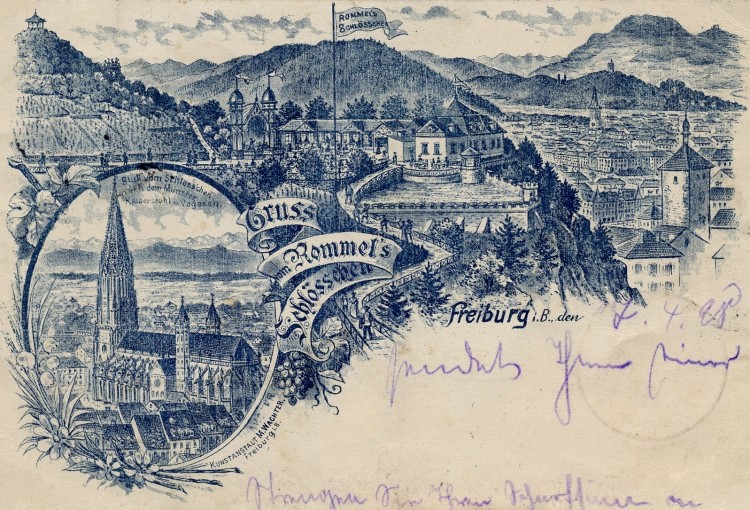 ROMMEL'S
SCHLÖSSCHEN
Blick vom Schlösschen
nach dem Münster
Kaiserstuhl u. Vogesen
Gruss
vom Rommel's
Schlösschen
Freiburg i. B., den
4.
sendet Ihnen
KUNSTANSTALT M. WACHTER
Freiburg i. B.
Sie Ihren